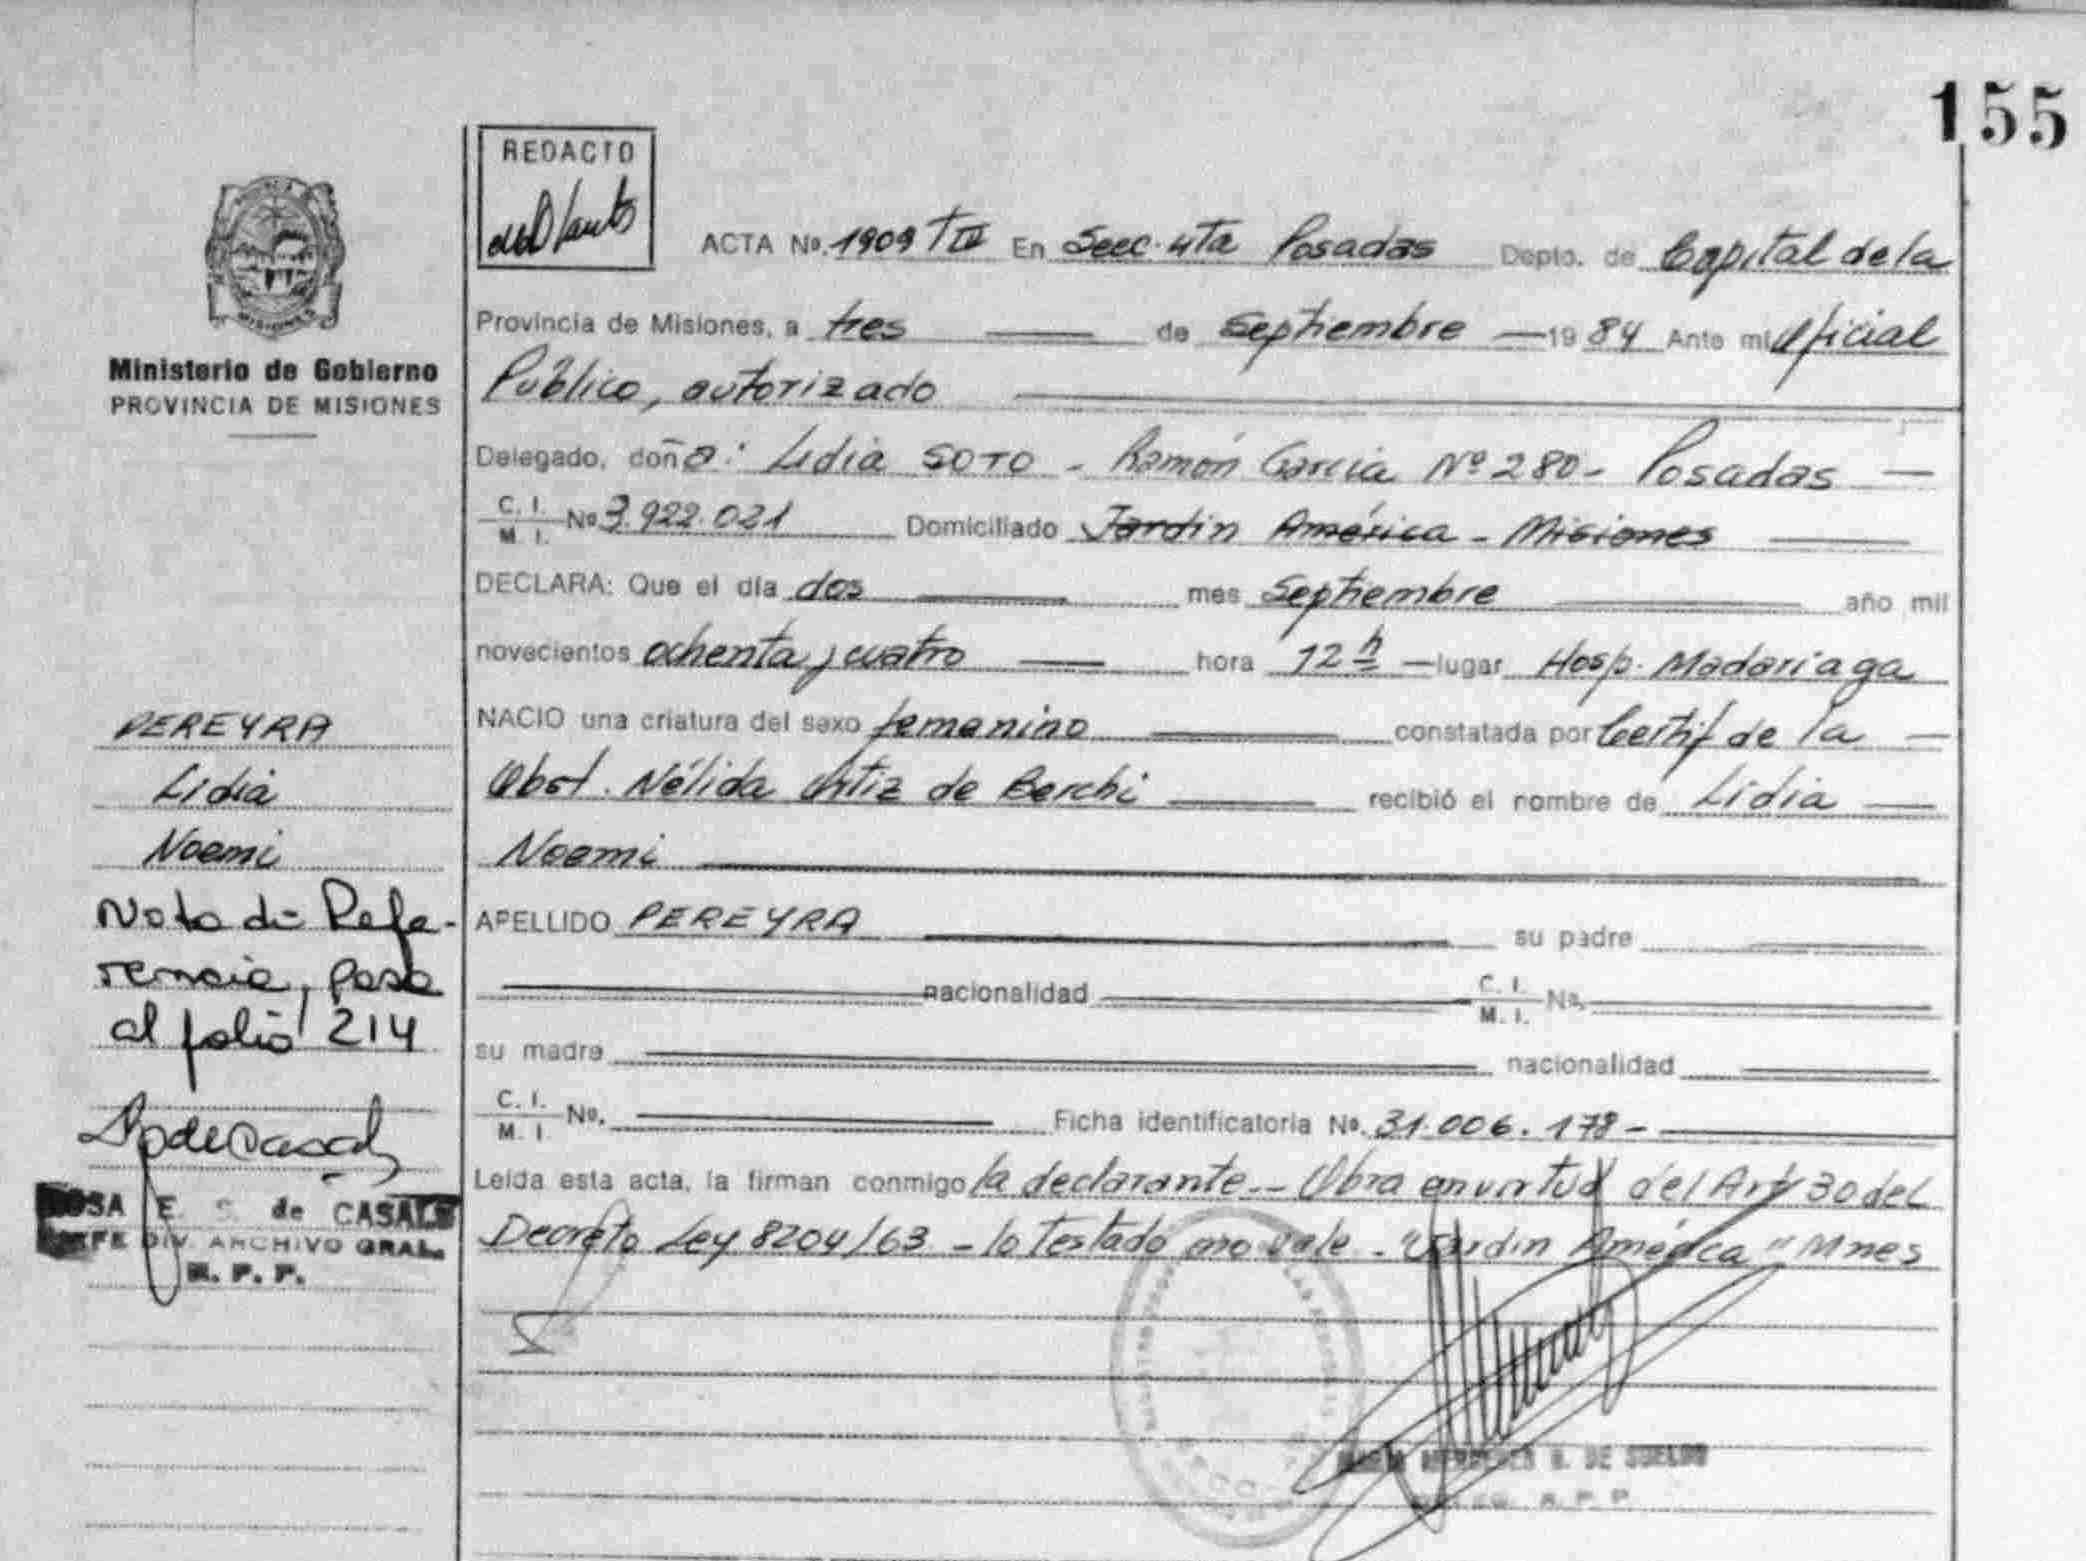 155
REDACTO
ACTA Nº. 1909 TIII En Secc. 4ta Posadas Depto. de Capital de la
Provincia de Misiones, a tres de Septiembre 1984 Ante mi Oficial
Público, autorizado
Delegado, doña: Lidia SOTO - Ramón García Nº 280 - Posadas
C. I. M. I. Nº 3.922.021 Domiciliado Jardin América - Misiones
DECLARA: Que el día dos mes Septiembre año mil
novecientos ochenta y cuatro hora 12 h lugar Hosp. Madariaga
NACIO una criatura del sexo femenino constatada por Certif de la
Obst. Nélida Ortiz de Berchi recibió el nombre de Lidia
Noemi
APELLIDO PEREYRA su padre
nacionalidad C. I. M. I. Nº.
su madre nacionalidad
C. I. M. I. Nº. Ficha identificatoria Nº. 31.006.178 -
Leída esta acta, la firman conmigo la declarante.-- Obra en virtud del Art 30 del
Decreto Ley 8204/63 - lo testado no vale - "Jardin América" Mnes
DE SUELDO
R. P. P.
MISIONES
Ministerio de Gobierno
PROVINCIA DE MISIONES
PEREYRA
Lidia
Noemi
Nota de Refe-
rencia, pasa
al folio 214
ROSA E. S. de CASALS
JEFE DIV. ARCHIVO GRAL.
R. P. P.